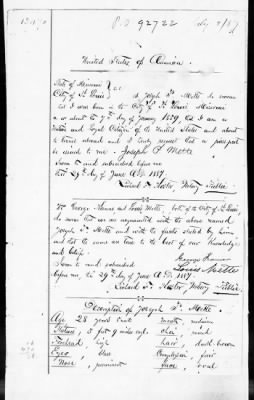 92722
United States of America
State of Missouri
City of St. Louis } ss. I, Joseph P. Motte do swear
that I was born in the City of St. Louis Missouri
on or about the 7th day of January 1859, that I am a
Native and Loyal Citizen of the United States and about
to travel abroad and I hereby request that a passport
be issued to me. Joseph P. Motte
Sworn to and subscribed before me
this 29th day of June A.D. 1887.
Notary Public
We George and Louis Motte, both of the City of St. Louis,
do swear that we are acquainted with the above named
Joseph P. Motte and with the facts stated by him
and that the same are true to the best of our Knowledge
and belief.
George
Louis Motte
Sworn to and subscribed
before me, this 29th day of June A.D. 1887.
Notary Public
Description of Joseph P. Motte
Age 28 years mouth medium
Stature 5 feet 9 miles chin round
Forehead, high hair, dark brown
Eyes, blue Complexion fair
Nose, prominent face, oval